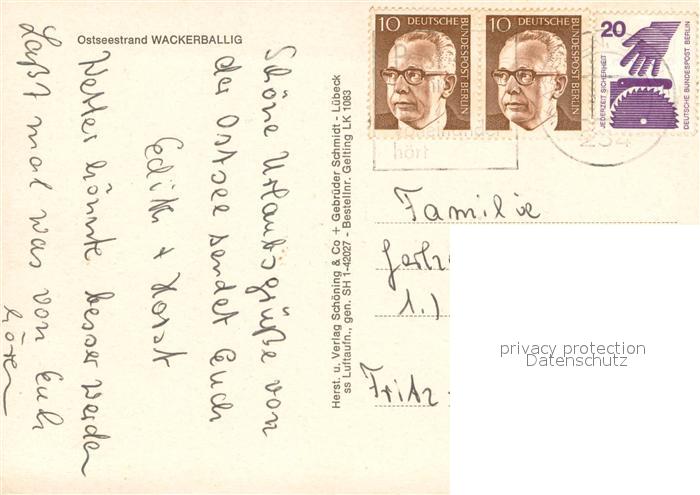 Ostseestrand WACKERBALLIG
Schöne Urlaubsgrüße von
der Ostsee sendet Euch
Edith + Horst
Wetter könnte besser werden
Laßt mal was von Euch
hören
Herst. u. Verlag Schöning & Co + Gebrüder Schmidt - Lübeck
ss Luftaufn., gen. SH 1-42027 - Bestellnr. Gelting LK 1083
10 DEUTSCHE BUNDESPOST BERLIN
10 DEUTSCHE BUNDESPOST BERLIN
20
JEDERZEIT SICHERHEIT
DEUTSCHE BUNDESPOST BERLIN
hört
234
Familie
1.)
Fritz-
privacy protection
Datenschutz